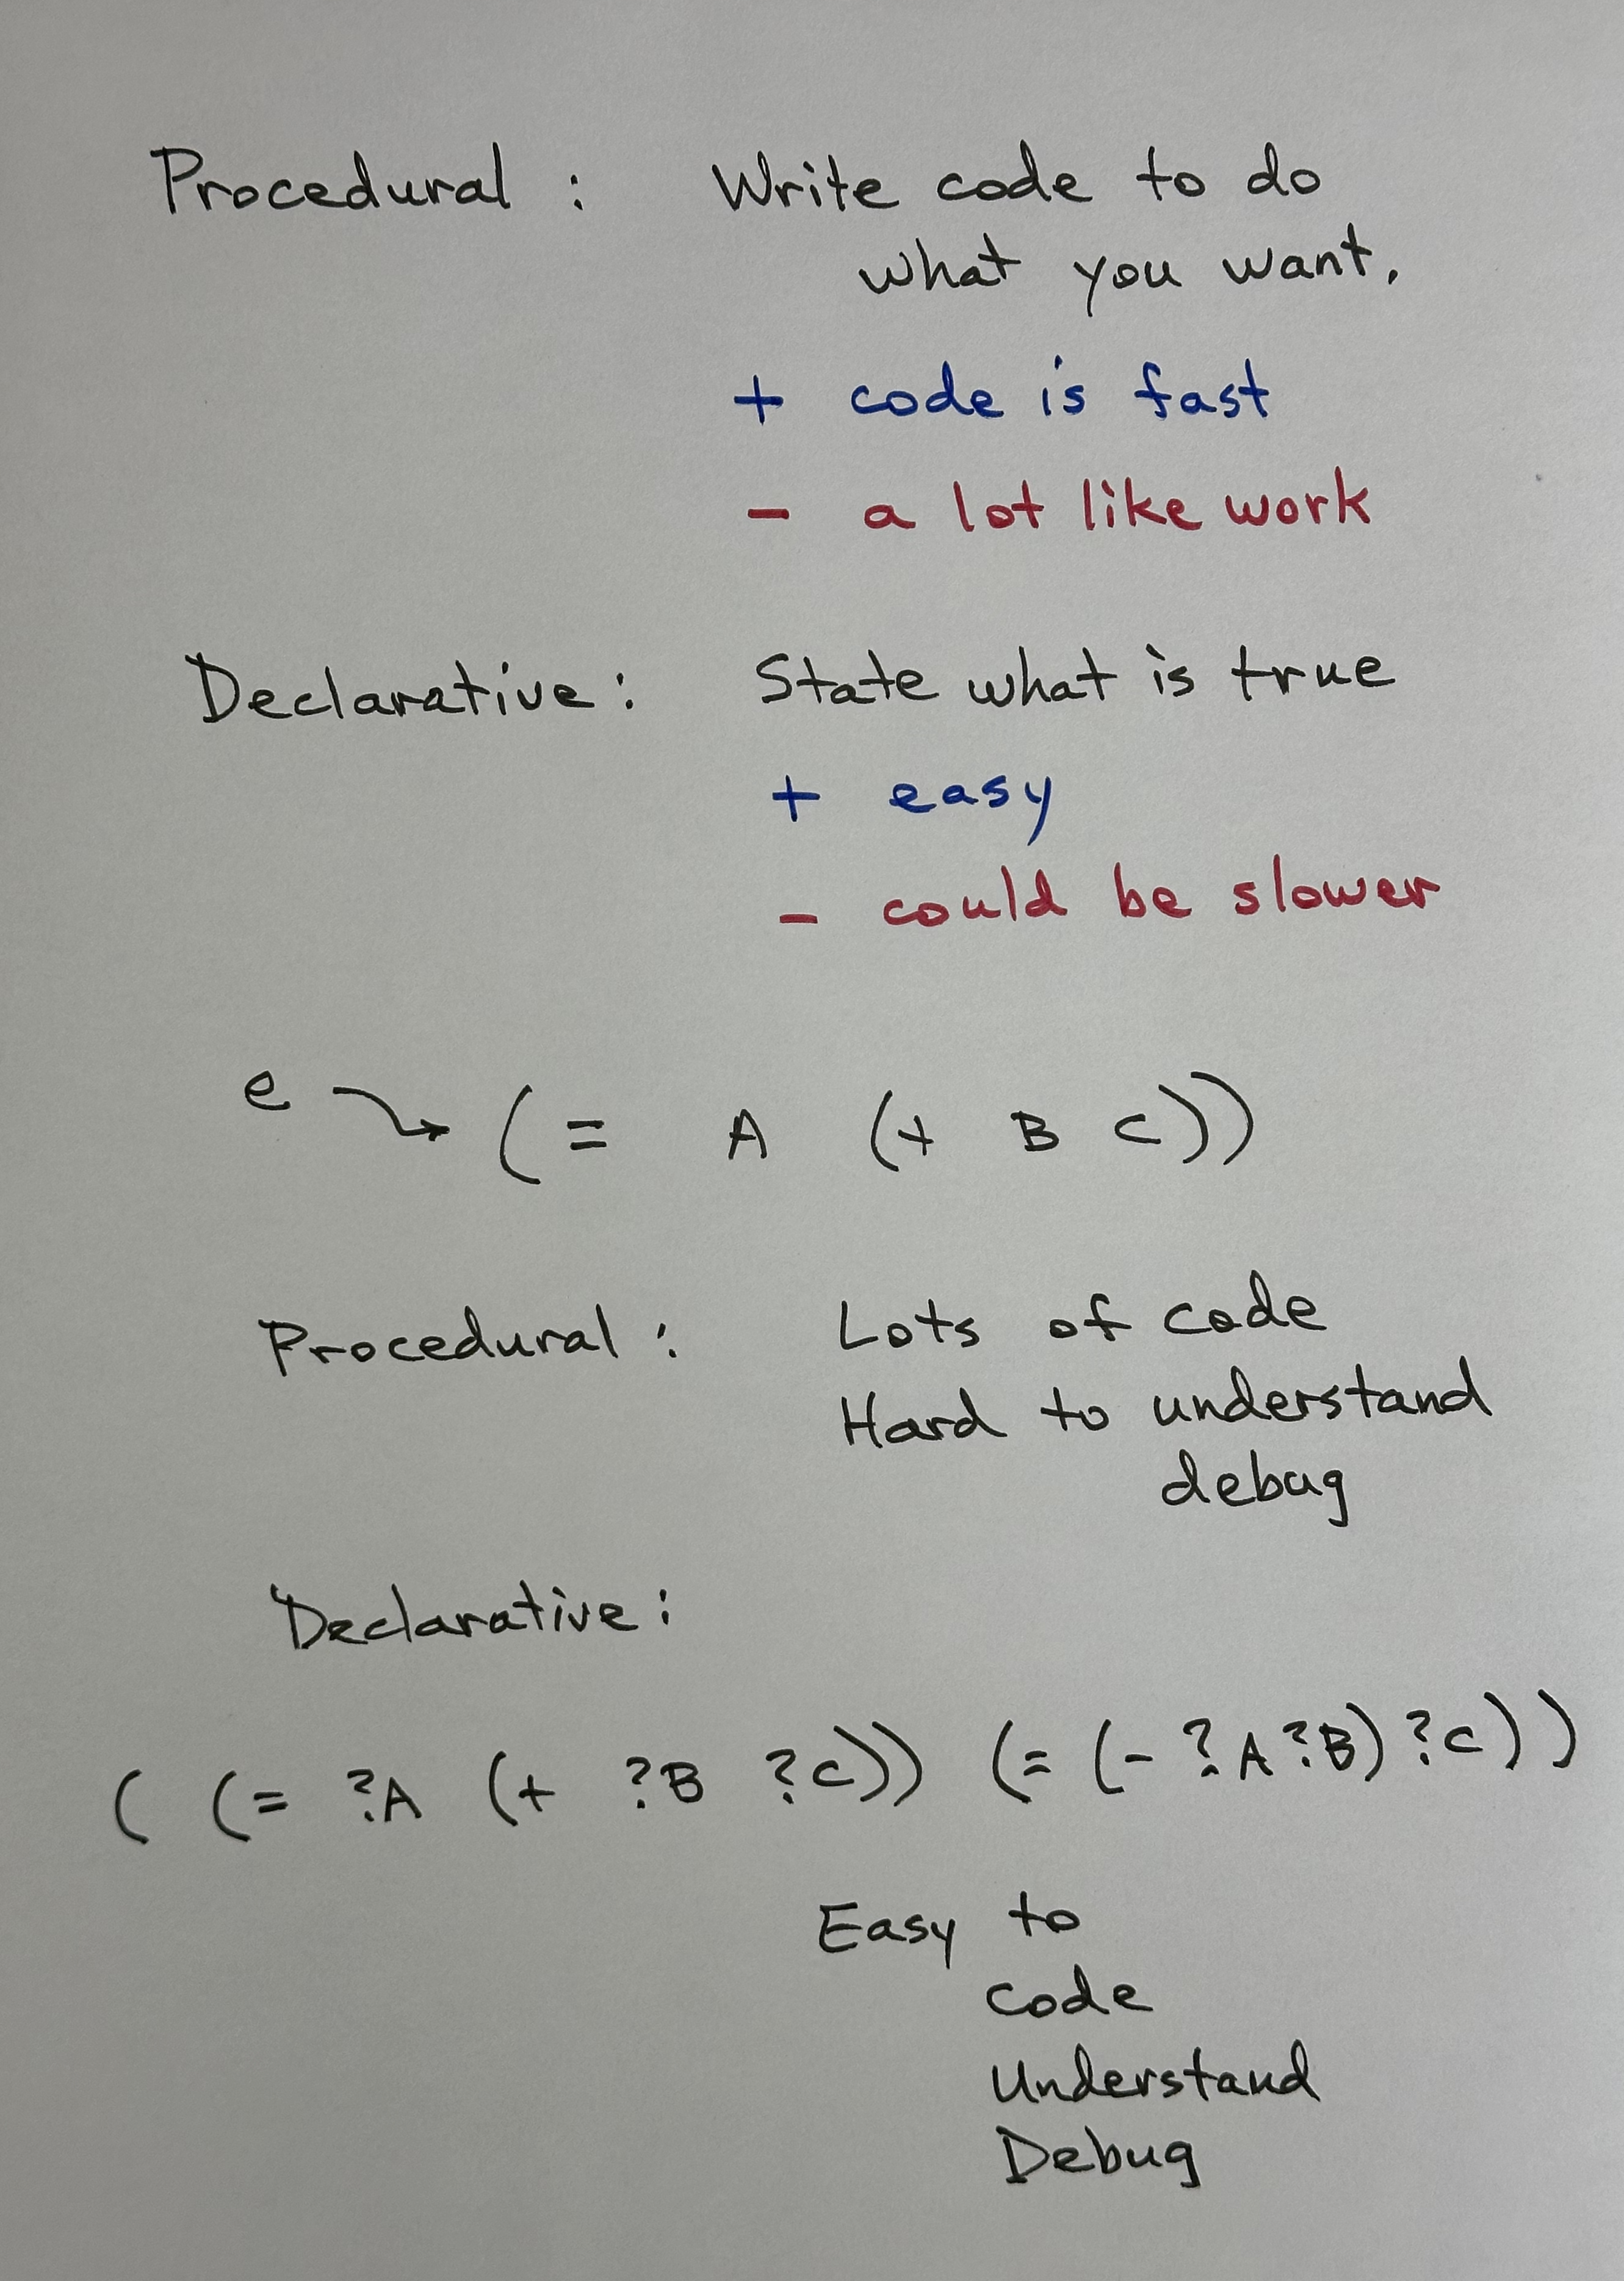 Procedural : Write code to do
what you want.
+ code is fast
- a lot like work
Declarative : State what is true
+ easy
- could be slower
e → (= A (+ B C))
Procedural : Lots of code
Hard to understand
debug
Declarative :
( (= ?A (+ ?B ?C)) (= (- ?A ?B) ?C))
Easy to
code
Understand
Debug